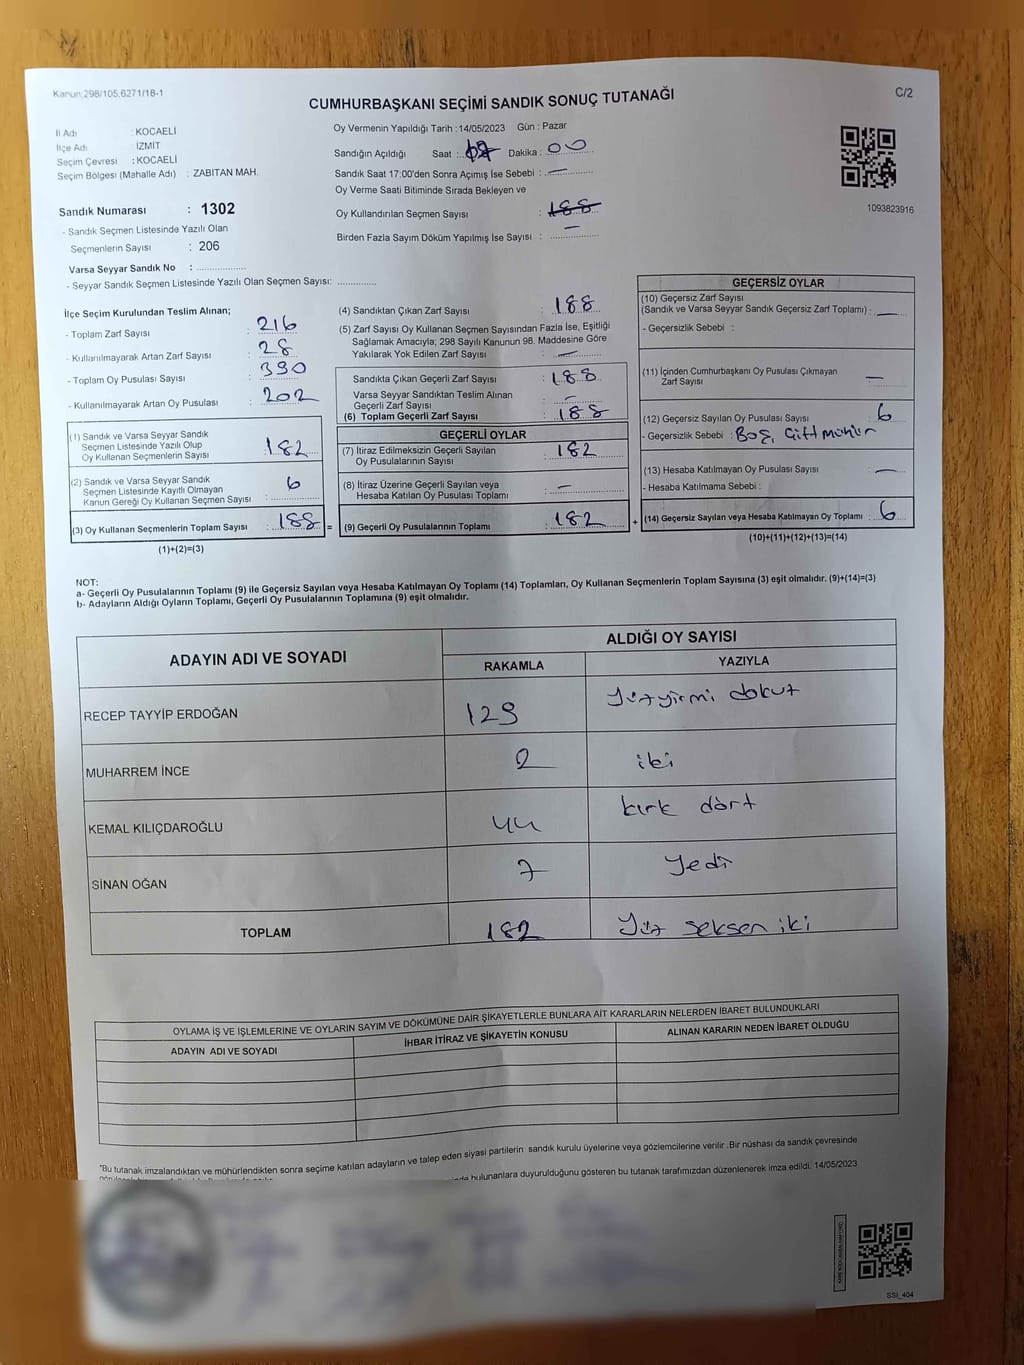 Kanun:298/105,6271/18-1
C/2
CUMHURBAŞKANI SEÇİMİ SANDIK SONUÇ TUTANAĞI
İl Adı : KOCAELİ
İlçe Adı : İZMİT
Seçim Çevresi : KOCAELİ
Seçim Bölgesi (Mahalle Adı) : ZABITAN MAH.
Sandık Numarası : 1302
- Sandık Seçmen Listesinde Yazılı Olan
Seçmenlerin Sayısı : 206
Varsa Seyyar Sandık No : ..................
- Seyyar Sandık Seçmen Listesinde Yazılı Olan Seçmen Sayısı: ..............
Oy Vermenin Yapıldığı Tarih : 14/05/2023 Gün : Pazar
Sandığın Açıldığı Saat : Dakika : 00
Sandık Saat 17:00'den Sonra Açımış İse Sebebi : —
Oy Verme Saati Bitiminde Sırada Bekleyen ve
Oy Kullandırılan Seçmen Sayısı : 188
Birden Fazla Sayım Döküm Yapılmış İse Sayısı : —
1093823916
İlçe Seçim Kurulundan Teslim Alınan;
- Toplam Zarf Sayısı : 216
- Kullanılmayarak Artan Zarf Sayısı : 28
- Toplam Oy Pusulası Sayısı : 390
- Kullanılmayarak Artan Oy Pusulası : 202
(1) Sandık ve Varsa Seyyar Sandık
Seçmen Listesinde Yazılı Olup
Oy Kullanan Seçmenlerin Sayısı : 182
(2) Sandık ve Varsa Seyyar Sandık
Seçmen Listesinde Kayıtlı Olmayan
Kanun Gereği Oy Kullanan Seçmen Sayısı : 6
(3) Oy Kullanan Seçmenlerin Toplam Sayısı : 188 =
(1)+(2)=(3)
(4) Sandıktan Çıkan Zarf Sayısı : 188
(5) Zarf Sayısı Oy Kullanan Seçmen Sayısından Fazla İse, Eşitliği
Sağlamak Amacıyla; 298 Sayılı Kanunun 98. Maddesine Göre
Yakılarak Yok Edilen Zarf Sayısı : —
Sandıkta Çıkan Geçerli Zarf Sayısı : 188
Varsa Seyyar Sandıktan Teslim Alınan
Geçerli Zarf Sayısı : —
(6) Toplam Geçerli Zarf Sayısı : 188
GEÇERLİ OYLAR
(7) İtiraz Edilmeksizin Geçerli Sayılan
Oy Pusulalarının Sayısı : 182
(8) İtiraz Üzerine Geçerli Sayılan veya
Hesaba Katılan Oy Pusulası Toplamı : —
(9) Geçerli Oy Pusulalarının Toplamı : 182 +
GEÇERSİZ OYLAR
(10) Geçersiz Zarf Sayısı
(Sandık ve Varsa Seyyar Sandık Geçersiz Zarf Toplamı) : —
- Geçersizlik Sebebi :
(11) İçinden Cumhurbaşkanı Oy Pusulası Çıkmayan
Zarf Sayısı —
(12) Geçersiz Sayılan Oy Pusulası Sayısı : 6
- Geçersizlik Sebebi : Boş, Çift mühür
(13) Hesaba Katılmayan Oy Pusulası Sayısı : —
- Hesaba Katılmama Sebebi :
(14) Geçersiz Sayılan veya Hesaba Katılmayan Oy Toplamı : 6
(10)+(11)+(12)+(13)=(14)
NOT:
a- Geçerli Oy Pusulalarının Toplamı (9) ile Geçersiz Sayılan veya Hesaba Katılmayan Oy Toplamı (14) Toplamları, Oy Kullanan Seçmenlerin Toplam Sayısına (3) eşit olmalıdır. (9)+(14)=(3)
b- Adayların Aldığı Oyların Toplamı, Geçerli Oy Pusulalarının Toplamına (9) eşit olmalıdır.
ADAYIN ADI VE SOYADI
ALDIĞI OY SAYISI
RAKAMLA YAZIYLA
RECEP TAYYİP ERDOĞAN 129 Yüzyirmi dokuz
MUHARREM İNCE 2 iki
KEMAL KILIÇDAROĞLU 44 kırk dört
SİNAN OĞAN 7 Yedi
TOPLAM 182 Yüz seksen iki
OYLAMA İŞ VE İŞLEMLERİNE VE OYLARIN SAYIM VE DÖKÜMÜNE DAİR ŞİKAYETLERLE BUNLARA AİT KARARLARIN NELERDEN İBARET BULUNDUKLARI
ADAYIN ADI VE SOYADI
İHBAR İTİRAZ VE ŞİKAYETİN KONUSU
ALINAN KARARIN NEDEN İBARET OLDUĞU
*Bu tutanak imzalandıktan ve mühürlendikten sonra seçime katılan adayların ve talep eden siyasi partilerin sandık kurulu üyelerine veya gözlemcilerine verilir .Bir nüshası da sandık çevresinde
bulunanlara duyurulduğunu gösteren bu tutanak tarafımızdan düzenlenerek imza edildi. 14/05/2023
SSI_404